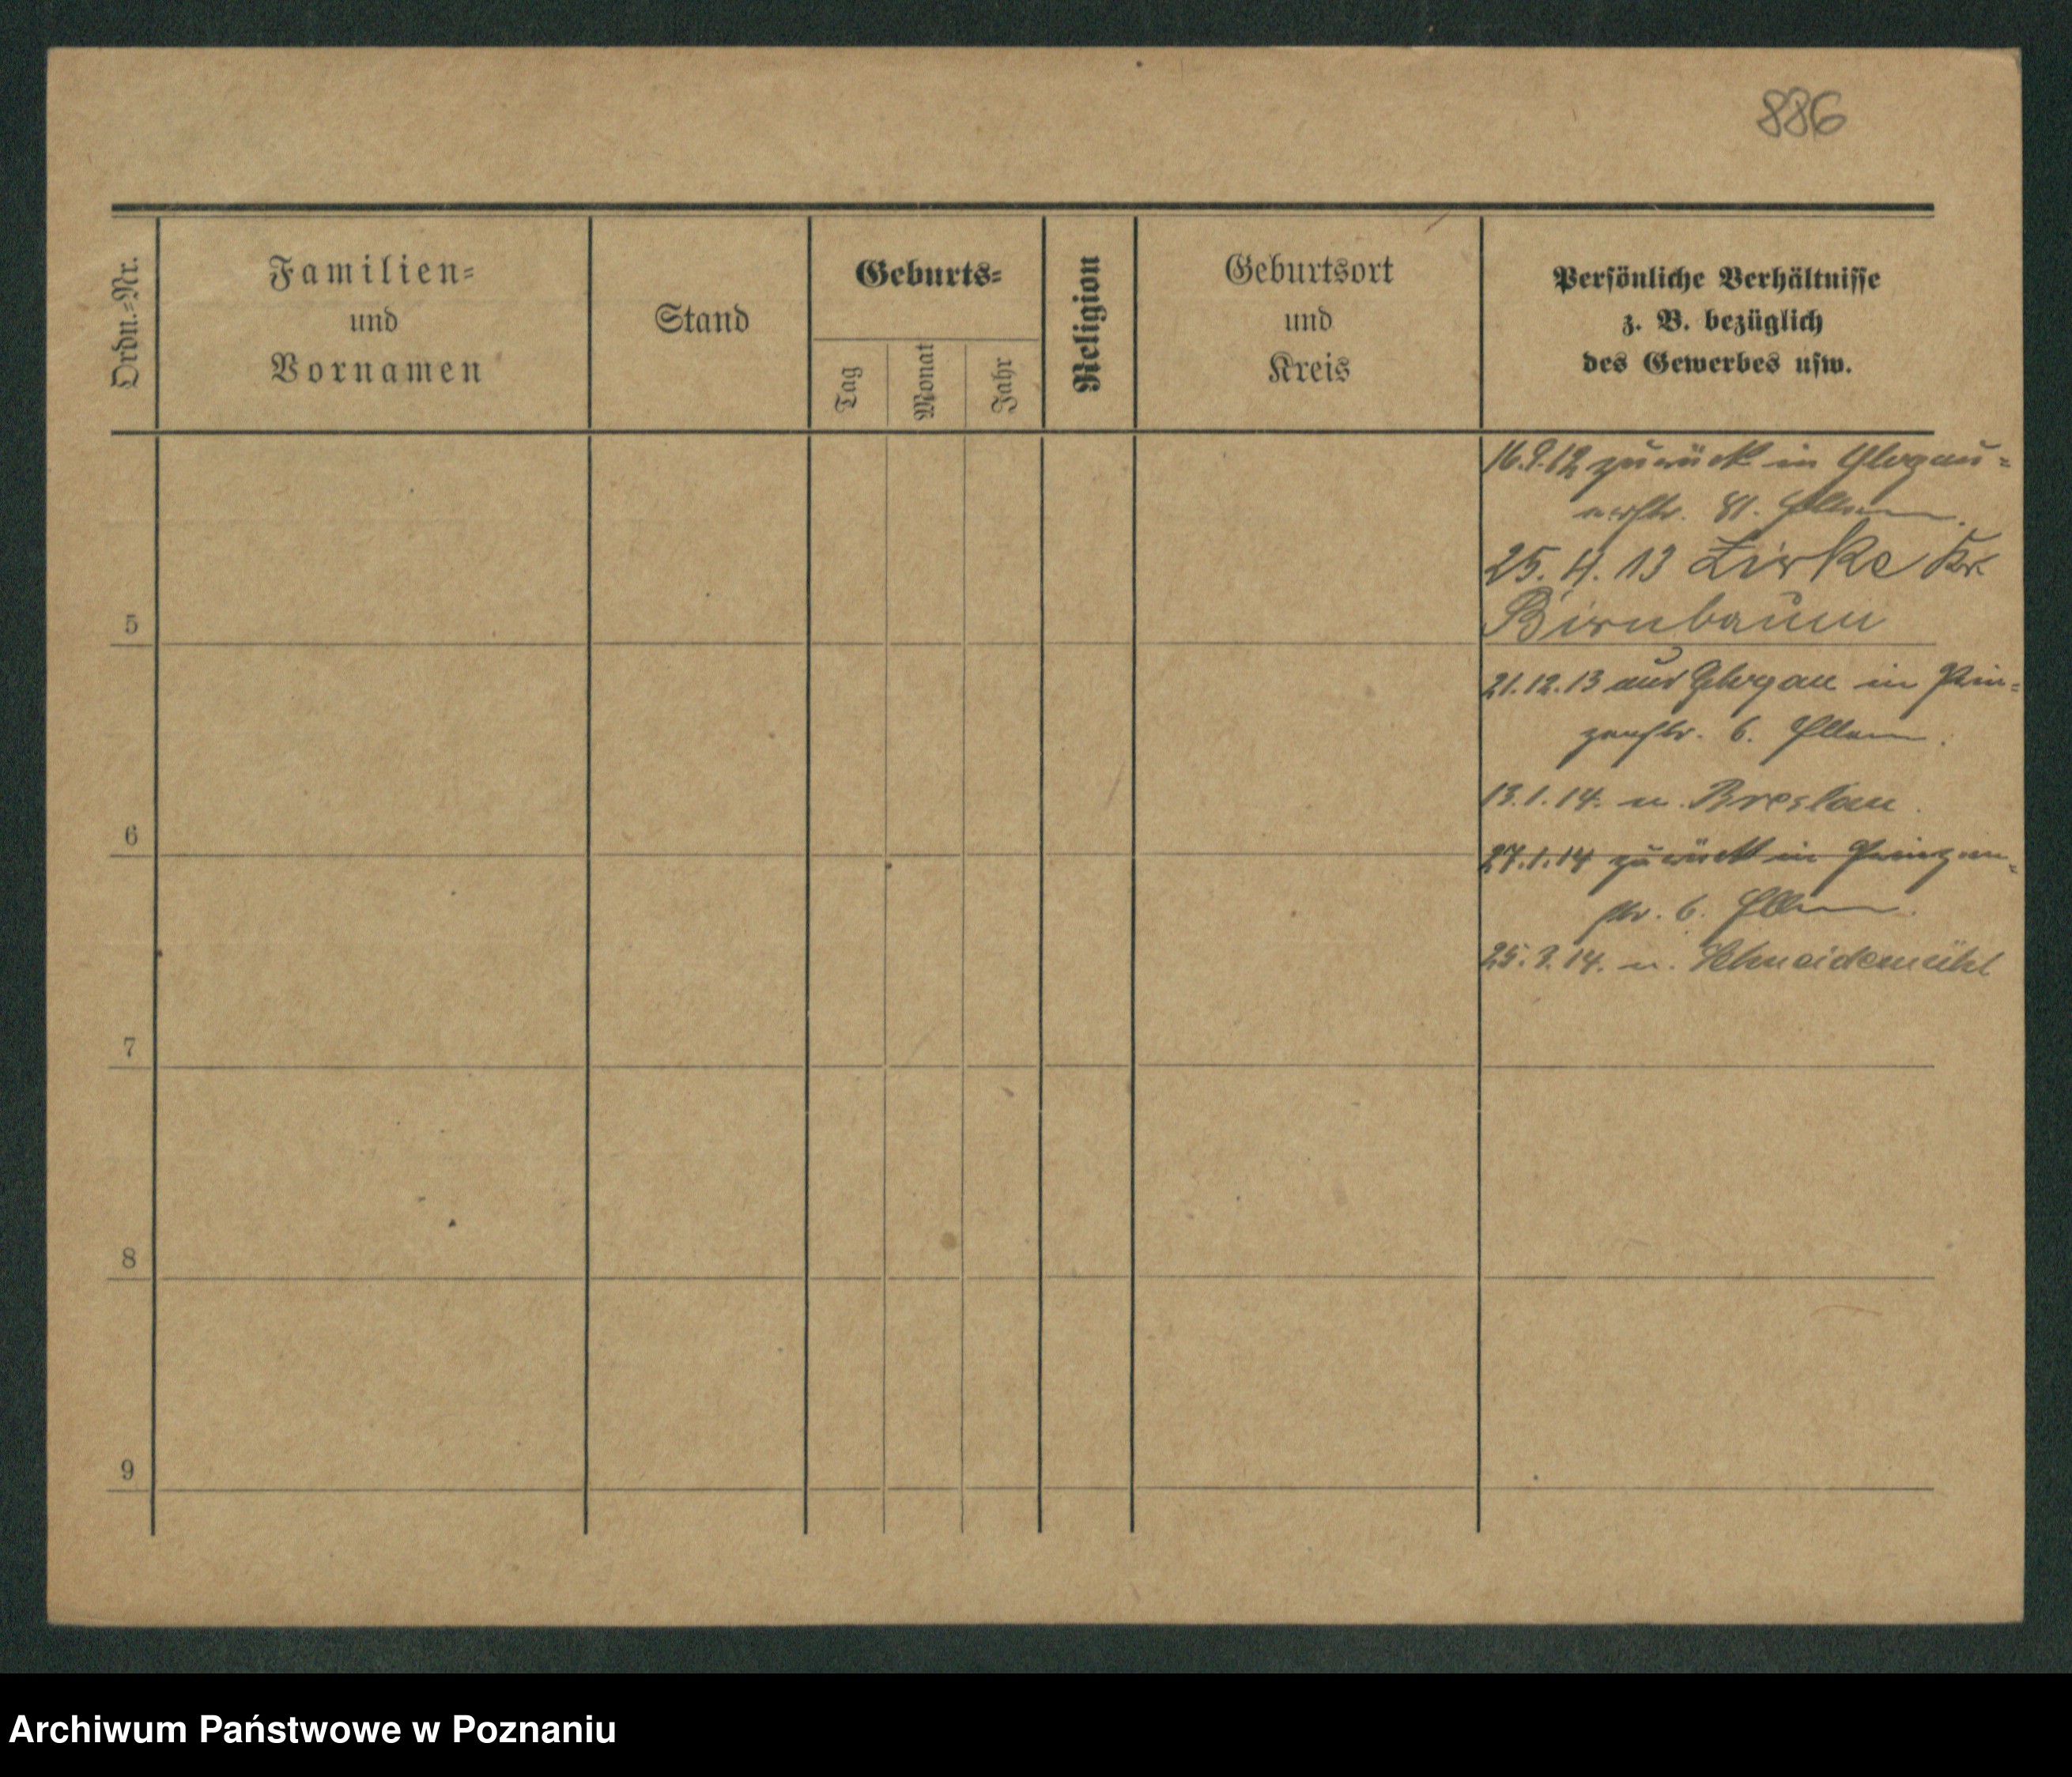 886
Ordn.-Nr.
Familien-
und
Vornamen
Stand
Geburts-
Tag
Monat
Jahr
Religion
Geburtsort
und
Kreis
Persönliche Verhältnisse
z. B. bezüglich
des Gewerbes usw.
16.9.12 zurück in Glogau-
erstr. 81.
25. 4. 13 Zirke Kr.
5
Birnbaum
21.12.13 aus Glogau in Prin-
zenstr. 6.
13.1.14. n. Breslau.
6
27.1.14 zurück in Prinzen-
str. 6.
25.3.14. n. Schneidemühl
7
8
9
Archiwum Państwowe w Poznaniu